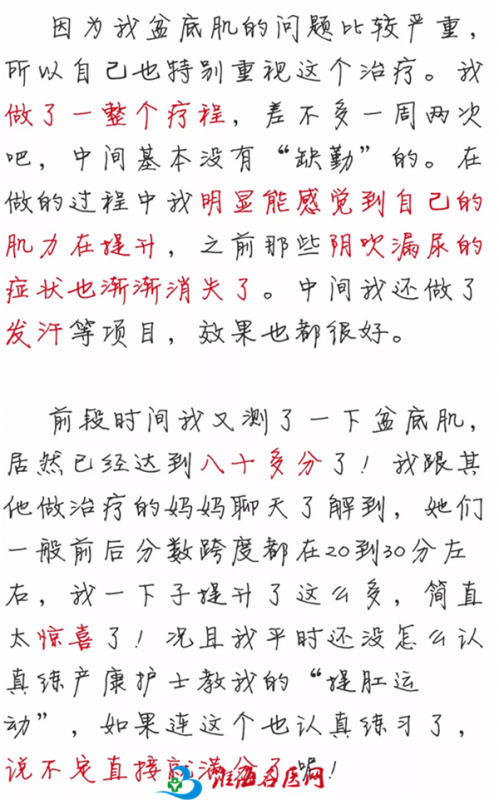 因为我盆底肌的问题比较严重，
所以自己也特别重视这个治疗。我
做了一整个疗程，差不多一周两次
吧，中间基本没有“缺勤”的。在
做的过程中我明显能感觉到自己的
肌力在提升，之前那些阴吹漏尿的
症状也渐渐消失了。中间我还做了
发汗等项目，效果也都很好。
前段时间我又测了一下盆底肌，
居然已经达到八十多分了！我跟其
他做治疗的妈妈聊天了解到，她们
一般前后分数跨度都在20到30分左
右，我一下子提升了这么多，简直
太惊喜了！况且我平时还没怎么认
真练产康护士教我的“提肛运
动”，如果连这个也认真练习了，
说不定直接就满分了呢！
淮海名医网